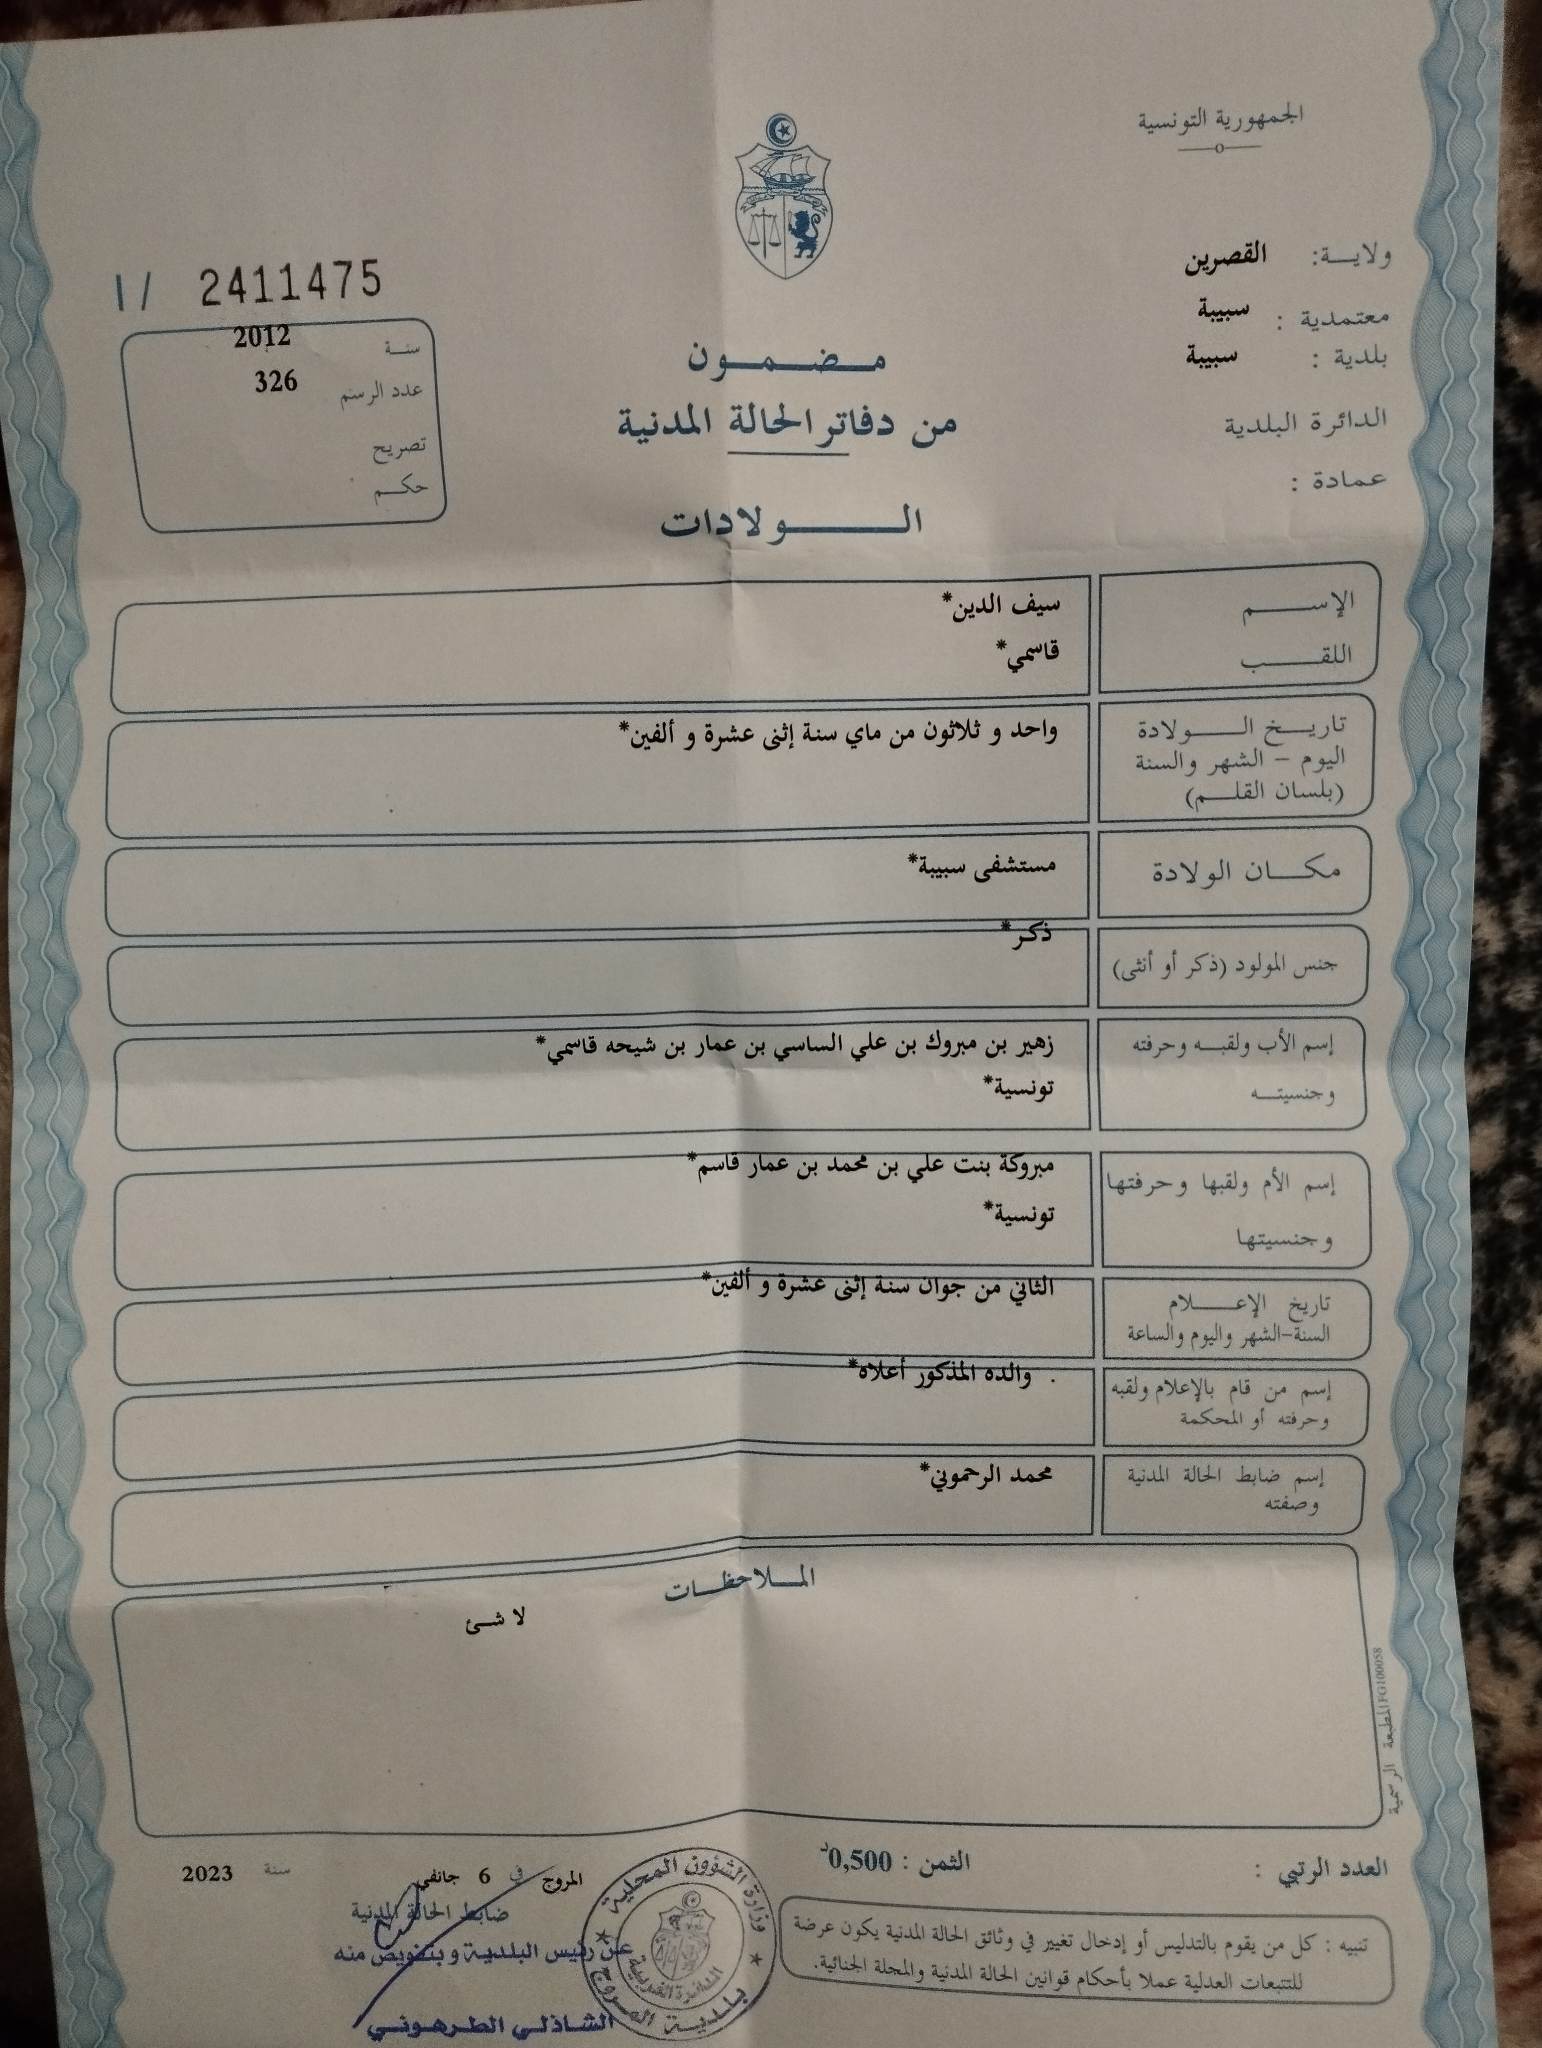 الجمهورية التونسية
ولايـــة: القصرين
معتمدية : سبيبة
بلدية : سبيبة
الدائرة البلدية
عمادة :
مـضـمـون
من دفاتر الحالة المدنية
الـــولادات
I / 2411475
سنـة 2012
عدد الرسم 326
تصريح
حكـم
الإســـم سيف الدين*
اللقـــب قاسمي*
تاريـخ الـــولادة واحد و ثلاثون من ماي سنة إثنى عشرة و ألفين*
اليوم - الشهر والسنة
(بلسان القلـم)
مكــان الولادة مستشفى سبيبة*
جنس المولود (ذكر أو أنثى) ذكر*
إسم الأب ولقبـه وحرفته زهير بن مبروك بن علي الساسي بن عمار بن شيحه قاسمي*
وجنسيتــه تونسية*
إسم الأم ولقبها وحرفتها مبروكة بنت علي بن محمد بن عمار قاسم*
وجنسيتها تونسية*
تاريخ الإعــلام الثاني من جوان سنة إثنى عشرة و ألفين*
السنة-الشهر واليوم والساعة
إسم من قام بالإعلام ولقبه . والده المذكور أعلاه*
وحرفته أو المحكمة
إسم ضابط الحالة المدنية محمد الرحموني*
وصفته
المـلاحظـات
لا شئ
المطبعة الرسمية FG100058
العدد الرتبي :
الثمن : 0,500د
تنبيه : كل من يقوم بالتدليس أو إدخال تغيير في وثائق الحالة المدنية يكون عرضة
للتتبعات العدلية عملا بأحكام قوانين الحالة المدنية والمجلة الجنائية.
المروج في 6 جانفي سنة 2023
ضابط الحالة المدنية
عن رئيس البلدية وبتفويض منه
الشاذلي الطرهوني
وزارة الشؤون المحلية
الدائرة الغربية
بلدية المروج